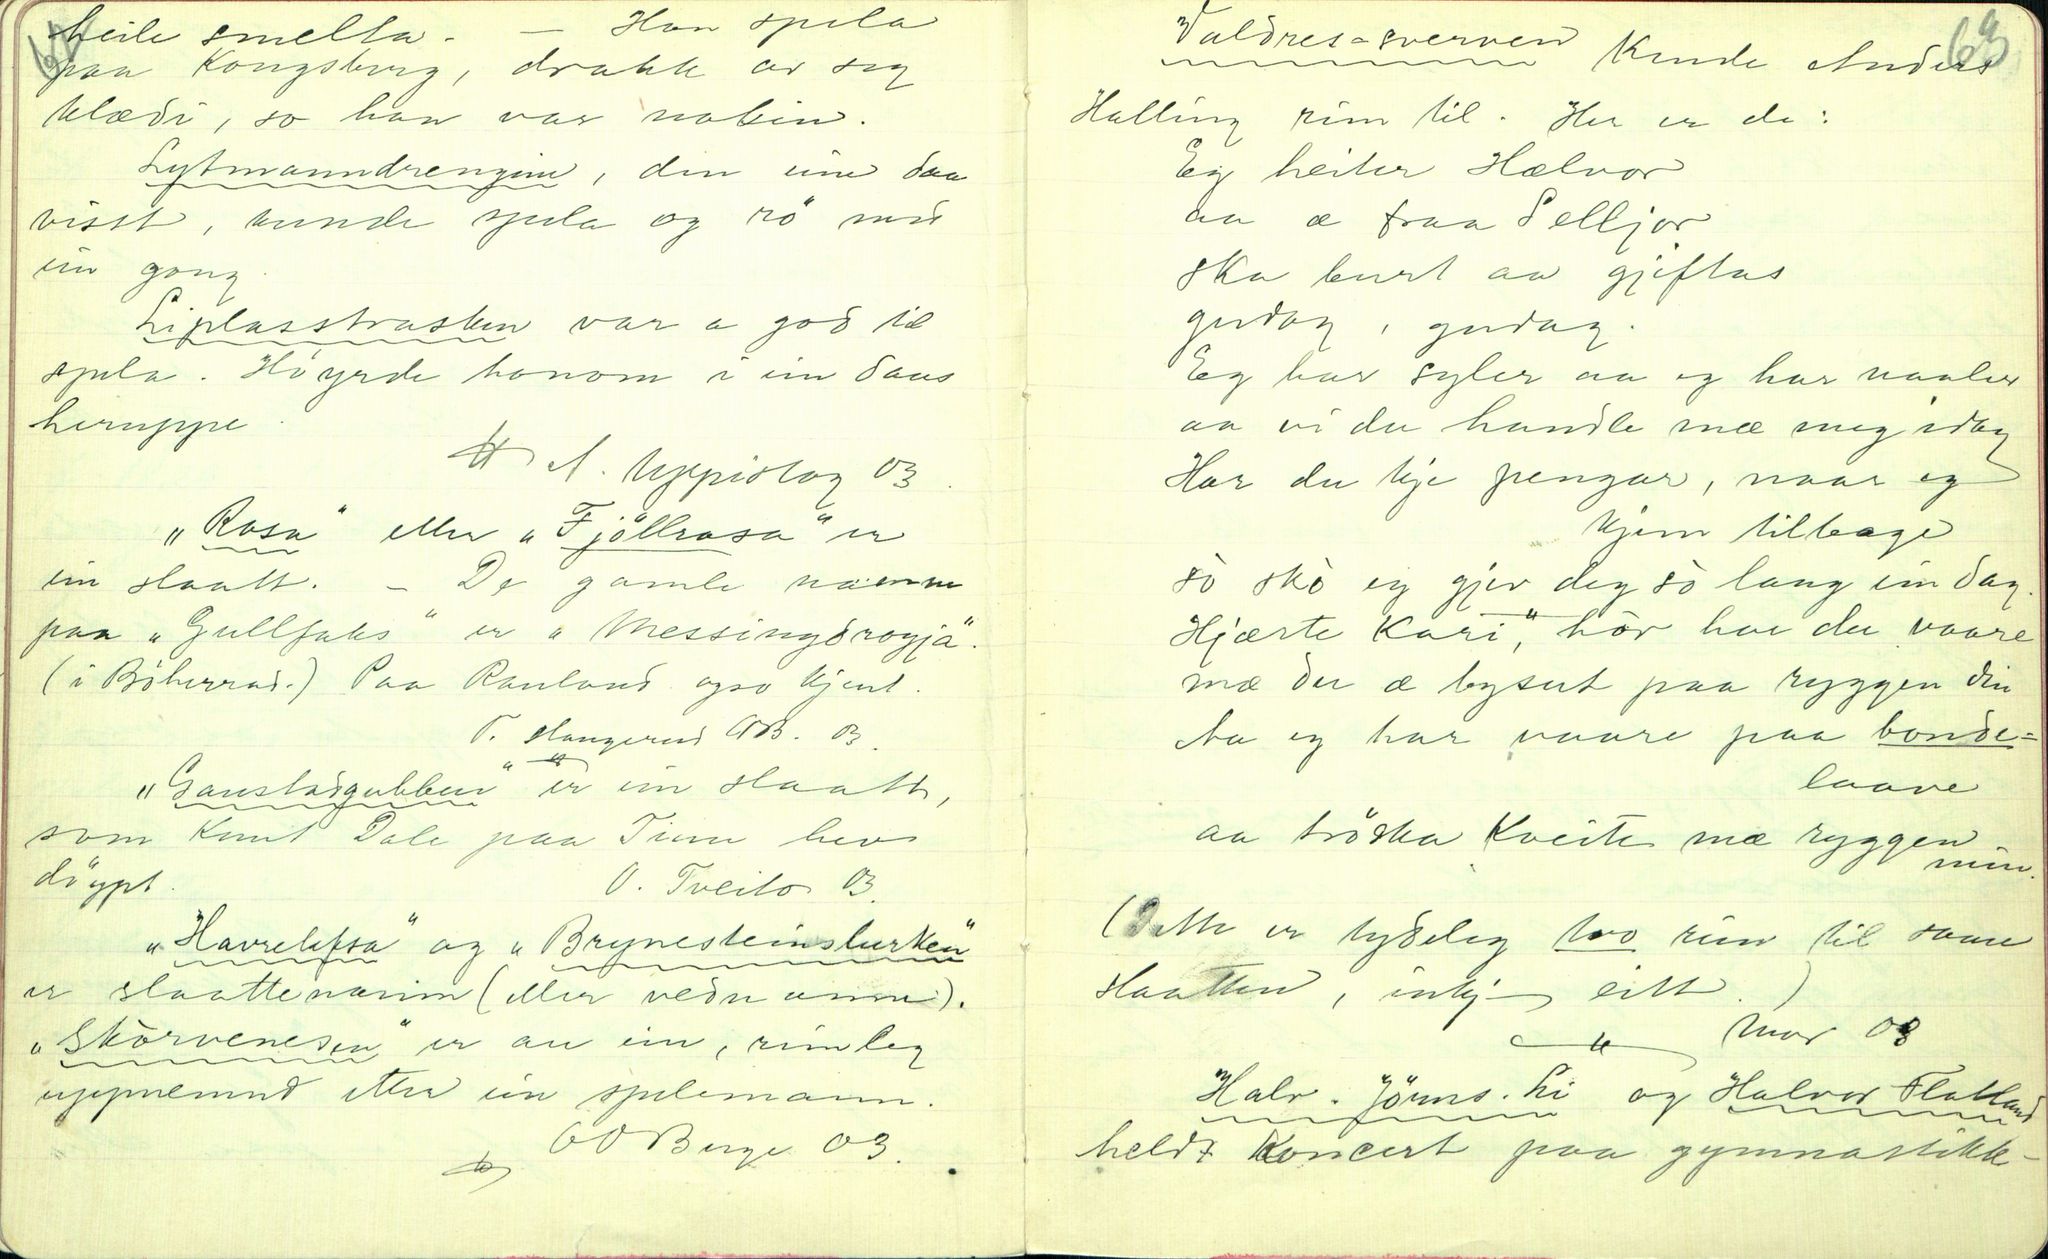 heile smelta. — Han spela
paa Kongsberg, drakk av seg
klædi, so han var nakin.
Lytmanndrengin, den eine daa
visst, kunde spela og rö med
ein gong.
Liplasstrasken var a god te
spela. Höyrde honom i ein dans
heruppe.
A. Uppistog 03.
"Rosa" eller "Fjöllrosa" er
ein slaatt. — De gamle namne
paa "Gullfaks" er "Messingdrogja".
(i Böherrad.) Paa Rauland ogso kjent.
T. Haugerud AB. 03.
"Gaustadgubben" er ein slaatt,
som Knut Dale paa Tinn hev
döypt. O. Tveito 03.
"Havrelefsa" og "Brynesteinslurken"
er slaattenamn (eller vednamn).
"Skörvenesen" er au ein, rimleg
uppnemnd etter ein spelemann.
O O Berge 03.
63
Valdres-sverven Kunde Anders
Halling rim til. Her er de:
Eg heiter Hælvor
aa æ fraa Selljor
ska burt aa gjiftas
gudag, gudag.
Eg har syler aa eg har naaler
aa vi du handle mæ meg idag
Har du kje pengar, naar eg
kjem tilbage
sò skò eg gjev deg sò lang ein dag.
Hjærte Kari", hör har du vaare
mæ du æ bysut paa ryggen din
Aa eg har vaare paa bonde=
laave
aa tröska Kveite mæ ryggen
min.
(Dette er tydeleg tvo rim til same
slaatten, inkje eitt.)
Mor 03
Halv. Jörns. Li og Halvor Flatland
heldt Koncert paa gymnastikk-